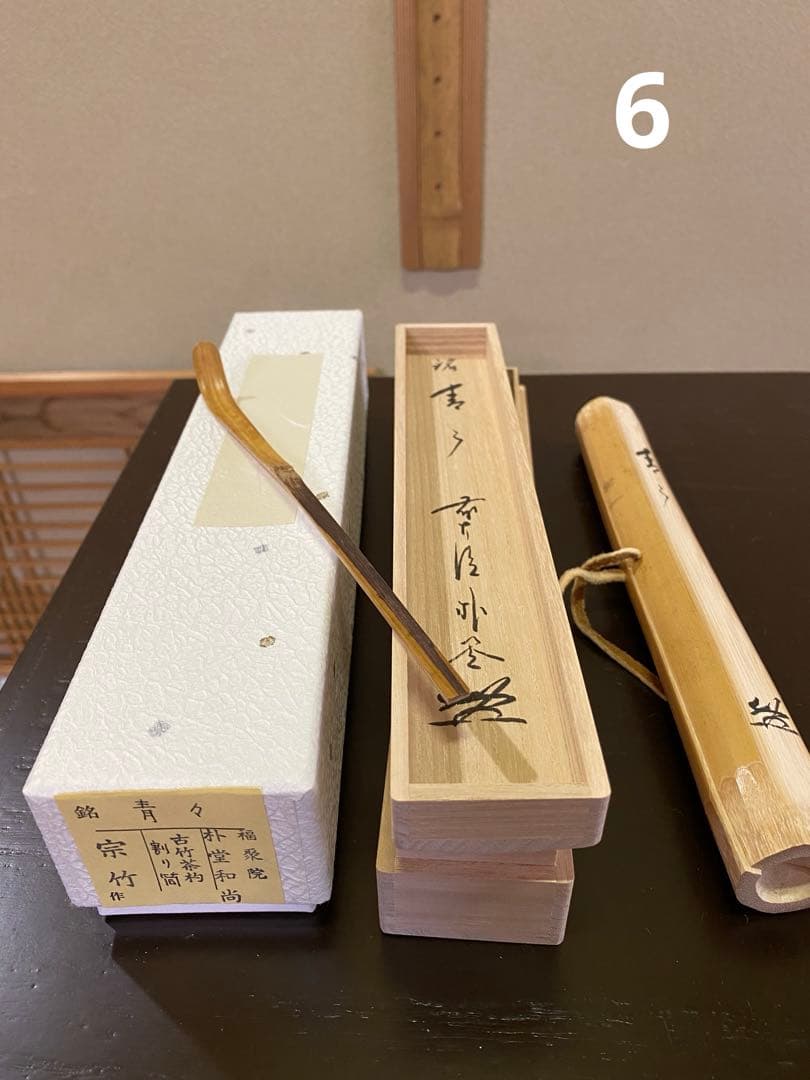 6
銘 青々
福聚院
朴堂和尚
古竹茶杓
割り筒
宗竹作
銘
青々
青々